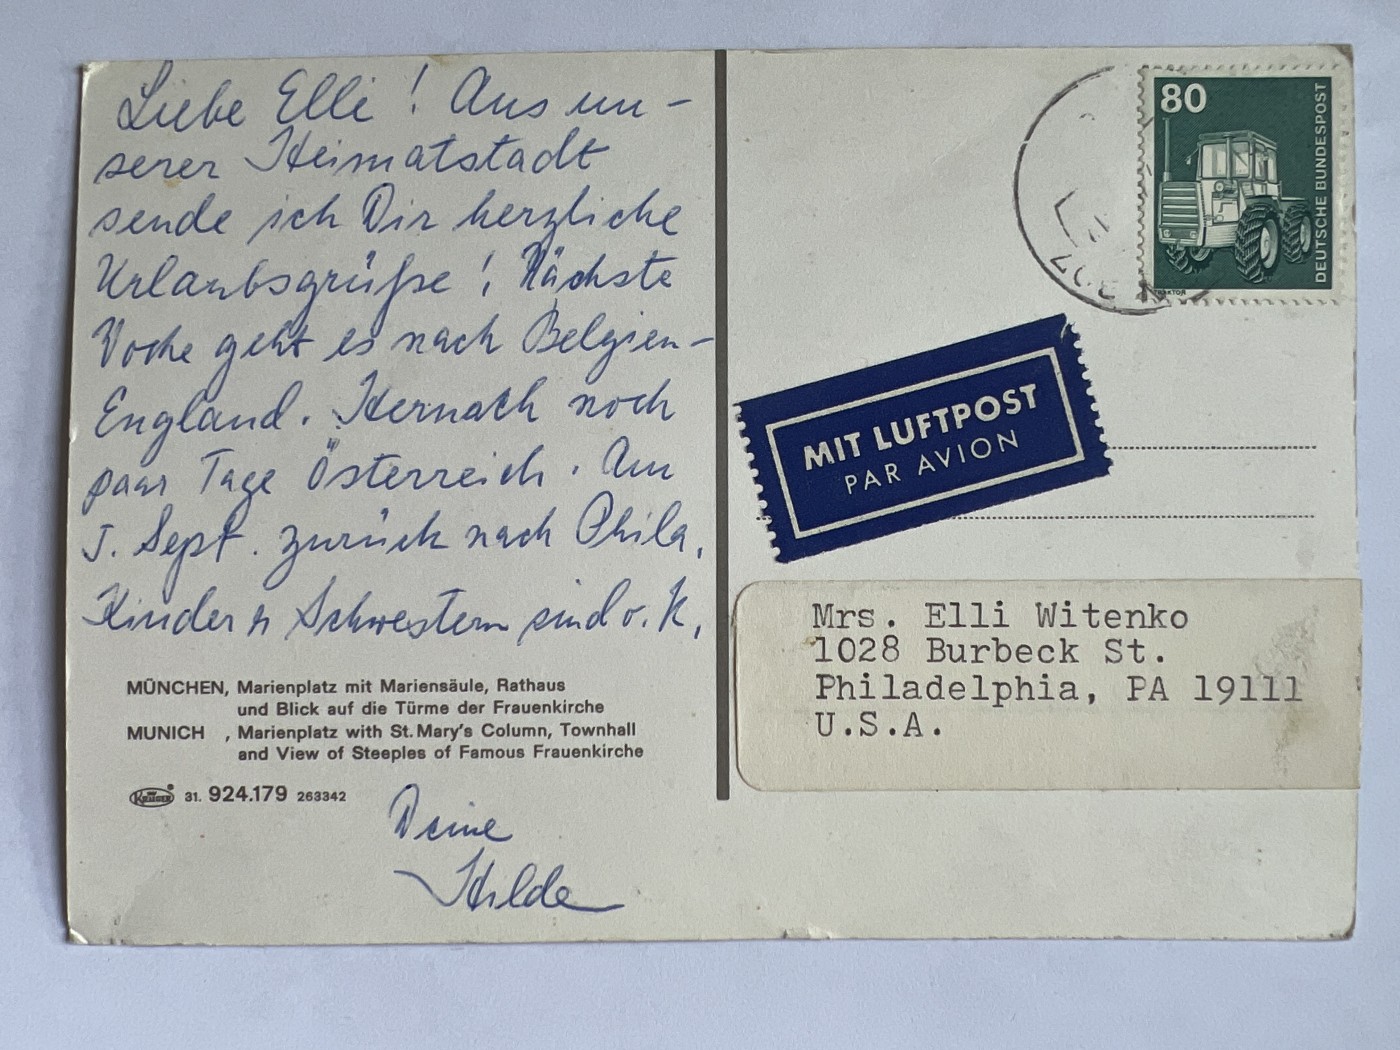 Liebe Elli! Aus un-
serer Heimatstadt
sende ich Dir herzliche
Urlaubsgrüße! Nächste
Woche geht es nach Belgien-
England. Hernach noch
paar Tage Österreich. Am
5. Sept. zurück nach Phila.
Kinder u Schwestern sind o. K.
MÜNCHEN, Marienplatz mit Mariensäule, Rathaus
und Blick auf die Türme der Frauenkirche
MUNICH , Marienplatz with St. Mary's Column, Townhall
and View of Steeples of Famous Frauenkirche
KRÜGER 31. 924.179 263342
Deine
Hilde
80
DEUTSCHE BUNDESPOST
TRAKTOR
MIT LUFTPOST
PAR AVION
Mrs. Elli Witenko
1028 Burbeck St.
Philadelphia, PA 19111
U.S.A.